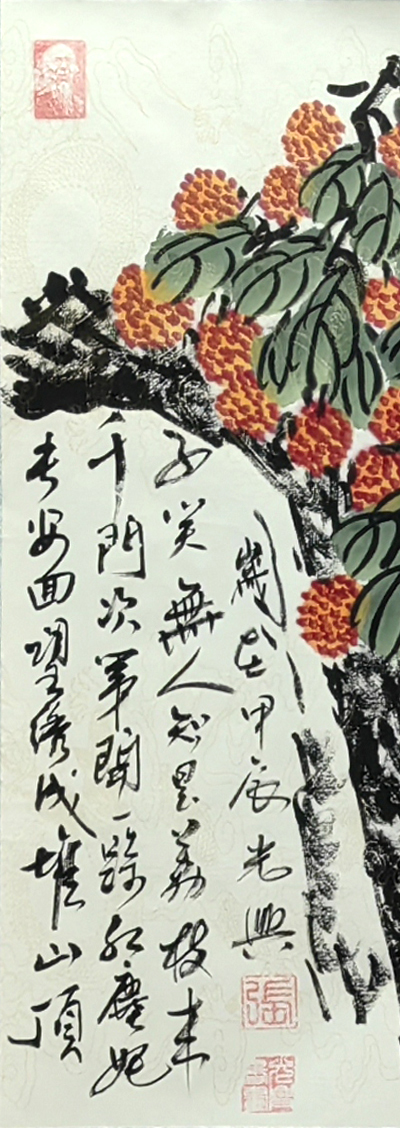 长安回望绣成堆山顶
千門次第開一骑红塵妃
子笑無人知是荔枝来
歲在甲辰光興
張